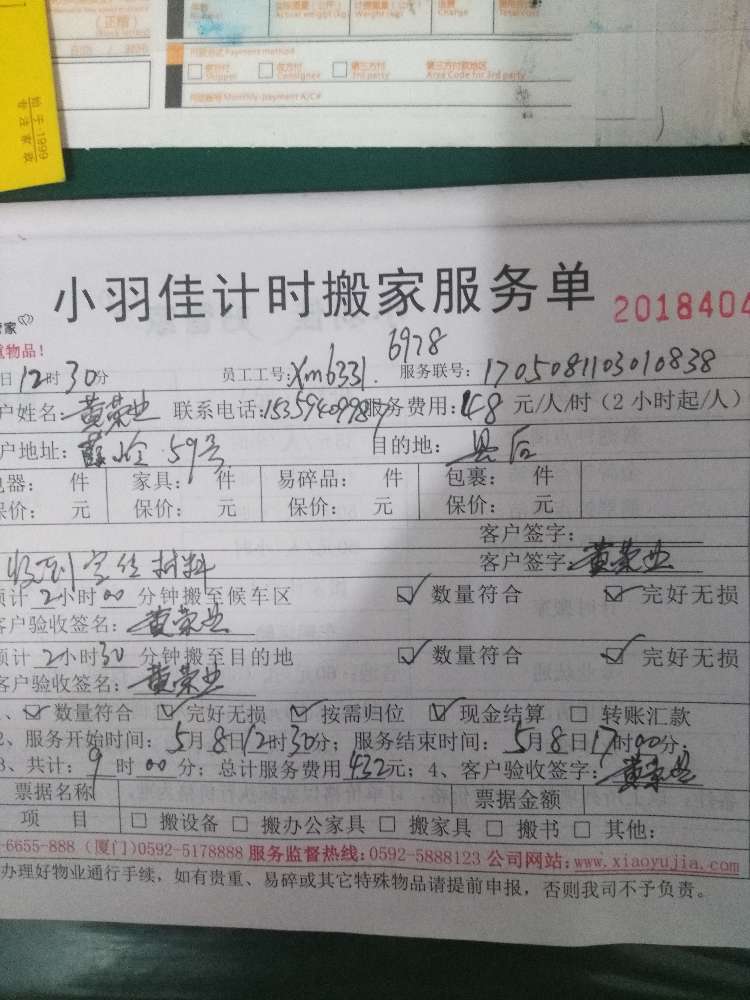 付款方式 Payment method
寄付付 Shipper 收方付 Consignee 第三方付 3rd party 第三方付款地区 Area Code for 3rd party
月结账号 Monthly-payment A/C#
小羽佳计时搬家服务单 2018404
管家
物品！
日12时30分 员工工号：Xm6331. 6978 服务联号：1705081103010838
户姓名：黄荣业 联系电话：15359409987 服务费用：48 元/人/时（2小时起/人）
户地址：59号 目的地：县后
电器： 件 家具： 件 易碎品： 件 包裹： 件
保价： 元 保价： 元 保价： 元 保价： 元
客户签字：
收到定位材料 客户签字：黄荣业
预计 2小时00分钟搬至候车区 ☑ 数量符合 ☑ 完好无损
客户验收签名：黄荣业
预计 2小时30分钟搬至目的地 ☑ 数量符合 ☑ 完好无损
客户验收签名：黄荣业
1、☑ 数量符合 ☑ 完好无损 ☑ 按需归位 ☑ 现金结算 □ 转账汇款
2、服务开始时间：5月8日12时30分；服务结束时间：5月8日17时00分；
3、共计：9时00分；总计服务费用432元；4、客户验收签字：黄荣业
票据名称 票据金额
项 目 □ 搬设备 □ 搬办公家具 □ 搬家具 □ 搬书 □ 其他：
-6655-888 (厦门)0592-5178888 服务监督热线：0592-5888123 公司网站：www.xiaoyujia.com
办理好物业通行手续，如有贵重、易碎或其它特殊物品请提前申报，否则我司不予负责。